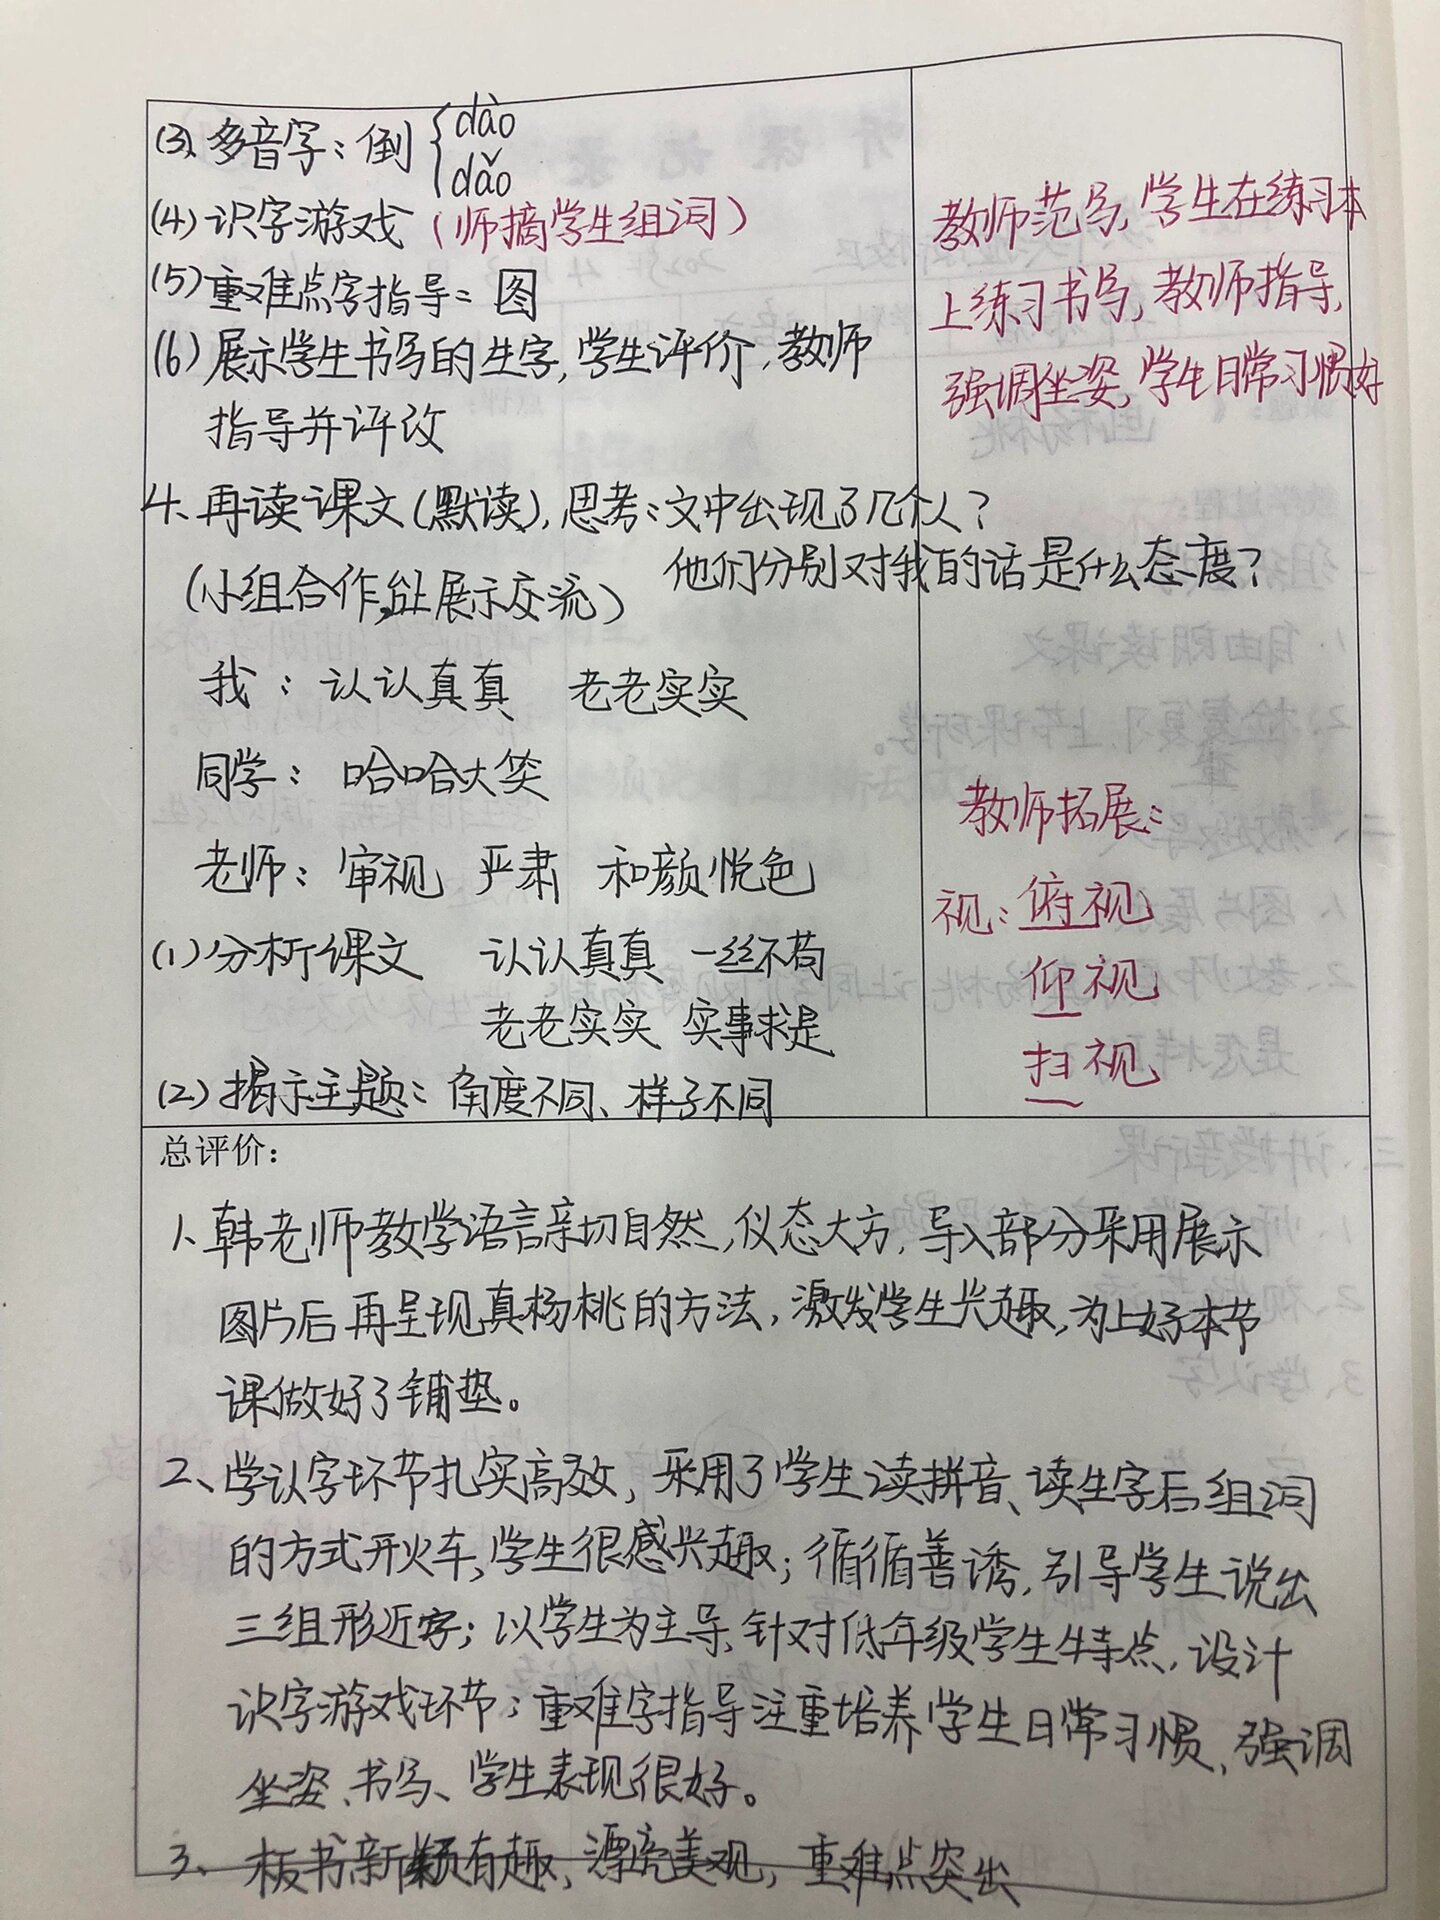 (3)、多音字：倒{dào
dǎo
(4) 识字游戏（师摘学生组词）
(5) 重难点字指导：图
(6) 展示学生书写的生字，学生评价，教师
指导并评改
教师范写，学生在练习本
上练习书写，教师指导，
强调坐姿，学生日常习惯好
4、再读课文(默读)，思考：文中出现了几个人？
他们分别对我的话是什么态度？
（小组合作，展示交流）
我：认认真真 老老实实
同学：哈哈大笑
老师：审视 严肃 和颜悦色
(1) 分析课文 认认真真 一丝不苟
老老实实 实事求是
(2) 揭示主题：角度不同、样子不同
教师拓展：
视：俯视
仰视
扫视
总评价：
1、韩老师教学语言亲切自然，仪态大方，导入部分采用展示
图片后再呈现真杨桃的方法，激发学生兴趣，为上好本节
课做好了铺垫。
2、学认字环节扎实高效，采用了学生读拼音、读生字后组词
的方式开火车，学生很感兴趣；循循善诱，引导学生说出
三组形近字；以学生为主导，针对低年级学生特点，设计
识字游戏环节；重难字指导注重培养学生日常习惯、强调
坐姿、书写、学生表现很好。
3、板书新颖有趣，漂亮美观，重难点突出